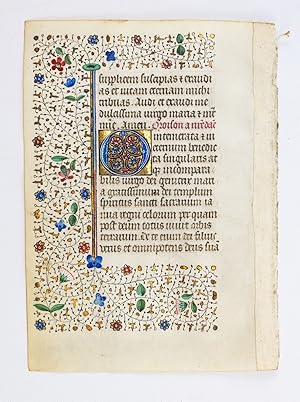 supplicem suscipias et exaudi
as et vitam eternam michi
tribuas. Audi et exaudi me
dulcissima virgo maria
Amen. Oroison a
intemerata et in
eternum benedic
ta singularis at
qz incompara
bilis virgo dei genitrix mari
a gratissimum dei templum
spiritus sancti sacrarium ia
nua regni celorum per quam
post deum totus vivit orbis
terrarum. de te enim dei filius
verus et omnipotens deus sua